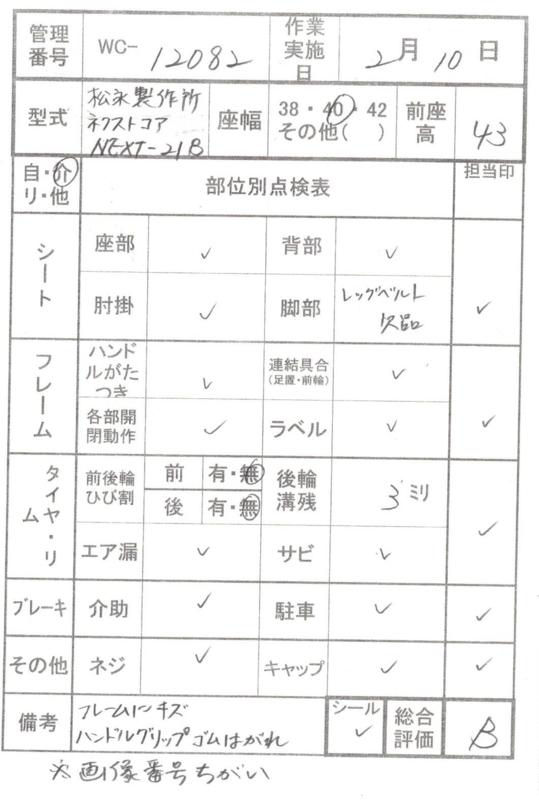 管理番号 WC-12082 作業実施日 2月10日
型式 松永製作所 ネクストコア NEXT-21B 座幅 38・40・42 その他( ) 前座高 43
自・介 リ・他 部位別点検表 担当印
シート 座部 ✓ 背部 ✓
肘掛 ✓ 脚部 レッグベルト 欠品 ✓
フレーム ハンドルがたつき ✓ 連結具合 (足置・前輪) ✓
各部開閉動作 ✓ ラベル ✓ ✓
タイヤ・リム 前後輪ひび割 前 有・無 後輪溝残 3ミリ
後 有・無
エア漏 ✓ サビ ✓ ✓
ブレーキ 介助 ✓ 駐車 ✓ ✓
その他 ネジ ✓ キャップ ✓ ✓
備考 フレームにキズ シール ✓ 総合評価 B
ハンドルグリップゴムはがれ
※画像番号ちがい